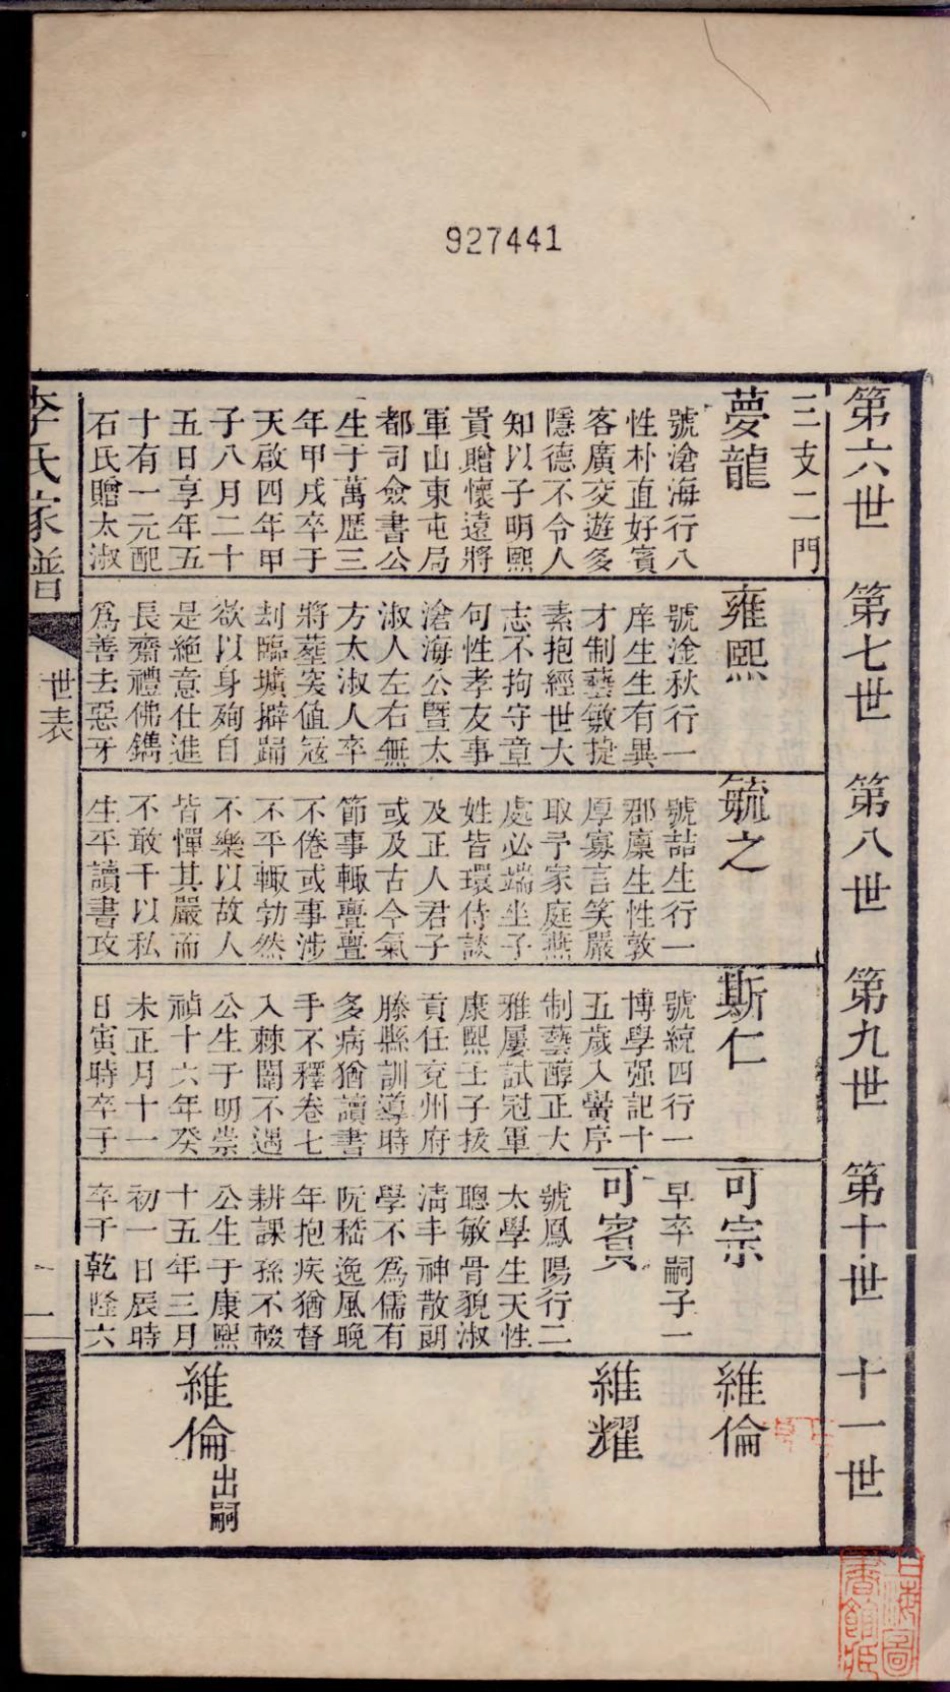 927441
第六世
第七世
第八世
第九世
第十世
十一世
三支二門
夢龍
號滄海行八
性朴直好賓
客廣交遊多
隱德不令人
知以子明熙
貴贈懷遠將
軍山東屯局
都司僉書公
生于萬歷三
年甲戌卒于
天啟四年甲
子八月二十
五日享年五
十有一元配
石氏贈太淑
雍熙
號淦秋行一
庠生生有異
才制藝敏捷
素抱經世大
志不拘守章
句性孝友事
滄海公暨太
淑人左右無
方太淑人卒
將塟突值冦
刦臨壙擗踊
欲以身殉自
是絶意仕進
長齋禮佛鐫
爲善去惡牙
毓之
號喆生行一
郡廩生性敦
厚寡言笑嚴
取予家庭燕
處必端坐子
姓皆環侍談
及正人君子
或及古今氣
節事輙亹亹
不倦或事涉
不平輙勃然
不樂以故人
皆憚其嚴而
不敢干以私
生平讀書攻
斯仁
號統四行一
博學强記十
五歲入黌序
制藝醇正大
雅屢試冠軍
康熙壬子拔
貢任兖州府
滕縣訓導時
多病猶讀書
手不釋卷七
入棘闈不遇
公生于明崇
禎十六年癸
未正月十一
日寅時卒于
可宗
早卒嗣子一
可賓
號鳳陽行二
太學生天性
聰敏骨貌淑
清丰神散朗
學不爲儒有
阮嵇逸風晚
年抱疾猶督
耕課孫不輟
公生于康熙
十五年三月
初一日辰時
卒于乾隆六
維倫
維耀
維倫出嗣
李氏家譜
世表
一